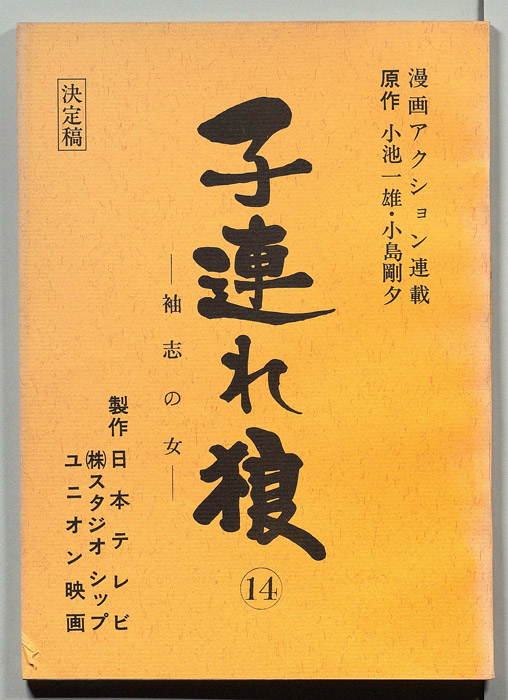 漫画アクション連載
原作 小池一雄・小島剛夕
子連れ狼
⑭
―袖志の女―
決定稿
製作 日本テレビ
㈱スタジオシップ
ユニオン映画